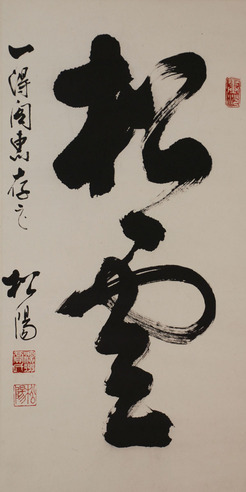 松雲
一得阁惠存之
松陽